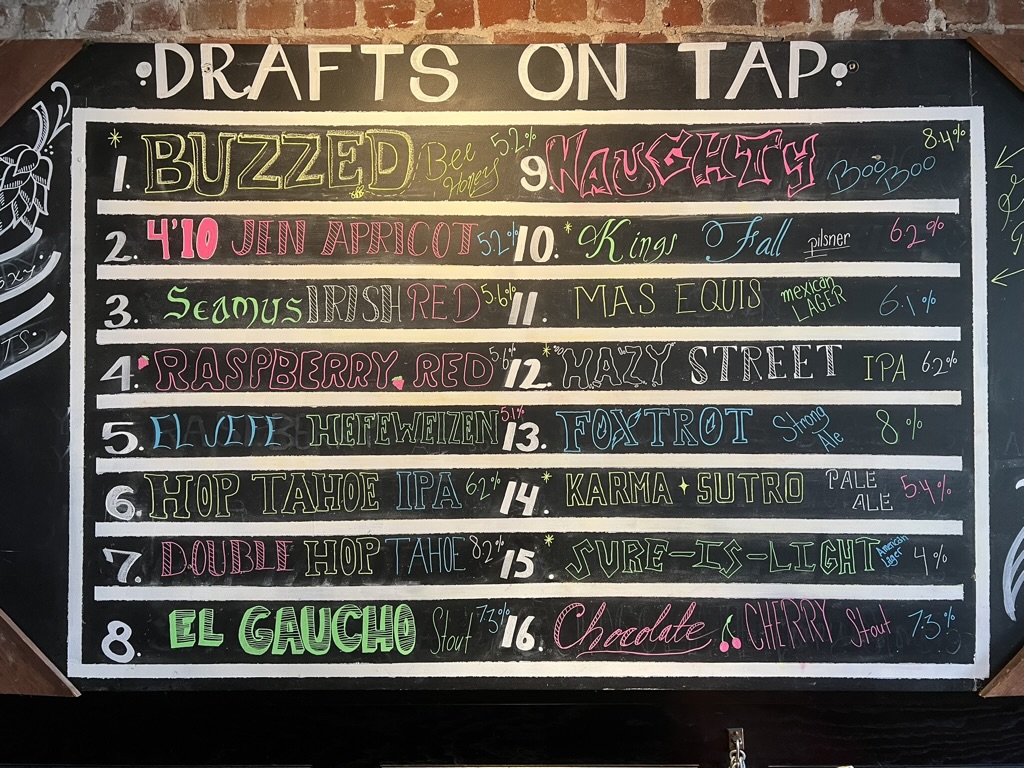 DRAFTS ON TAP
1. BUZZED Bee Honey 5.2%
2. 4'10 JEN APRICOT 5.2%
3. SEAMUS IRISH RED 5.6%
4. RASPBERRY RED
5. EL JEFE HEFEWEIZEN 5.1%
6. HOP TAHOE IPA 6.2%
7. DOUBLE HOP TAHOE 8.2%
8. EL GAUCHO Stout 7.3%
9. NAUGHTY BOO BOO 8.4%
10. Kings Fall pilsner 6.2%
11. MAS EQUIS mexican LAGER 6.1%
12. HAZY STREET IPA 6.2%
13. FOXTROT Strong Ale 8%
14. KARMA SUTRO PALE ALE 5.4%
15. SURE-IS-LIGHT American lager 4%
16. Chocolate CHERRY Stout 7.3%